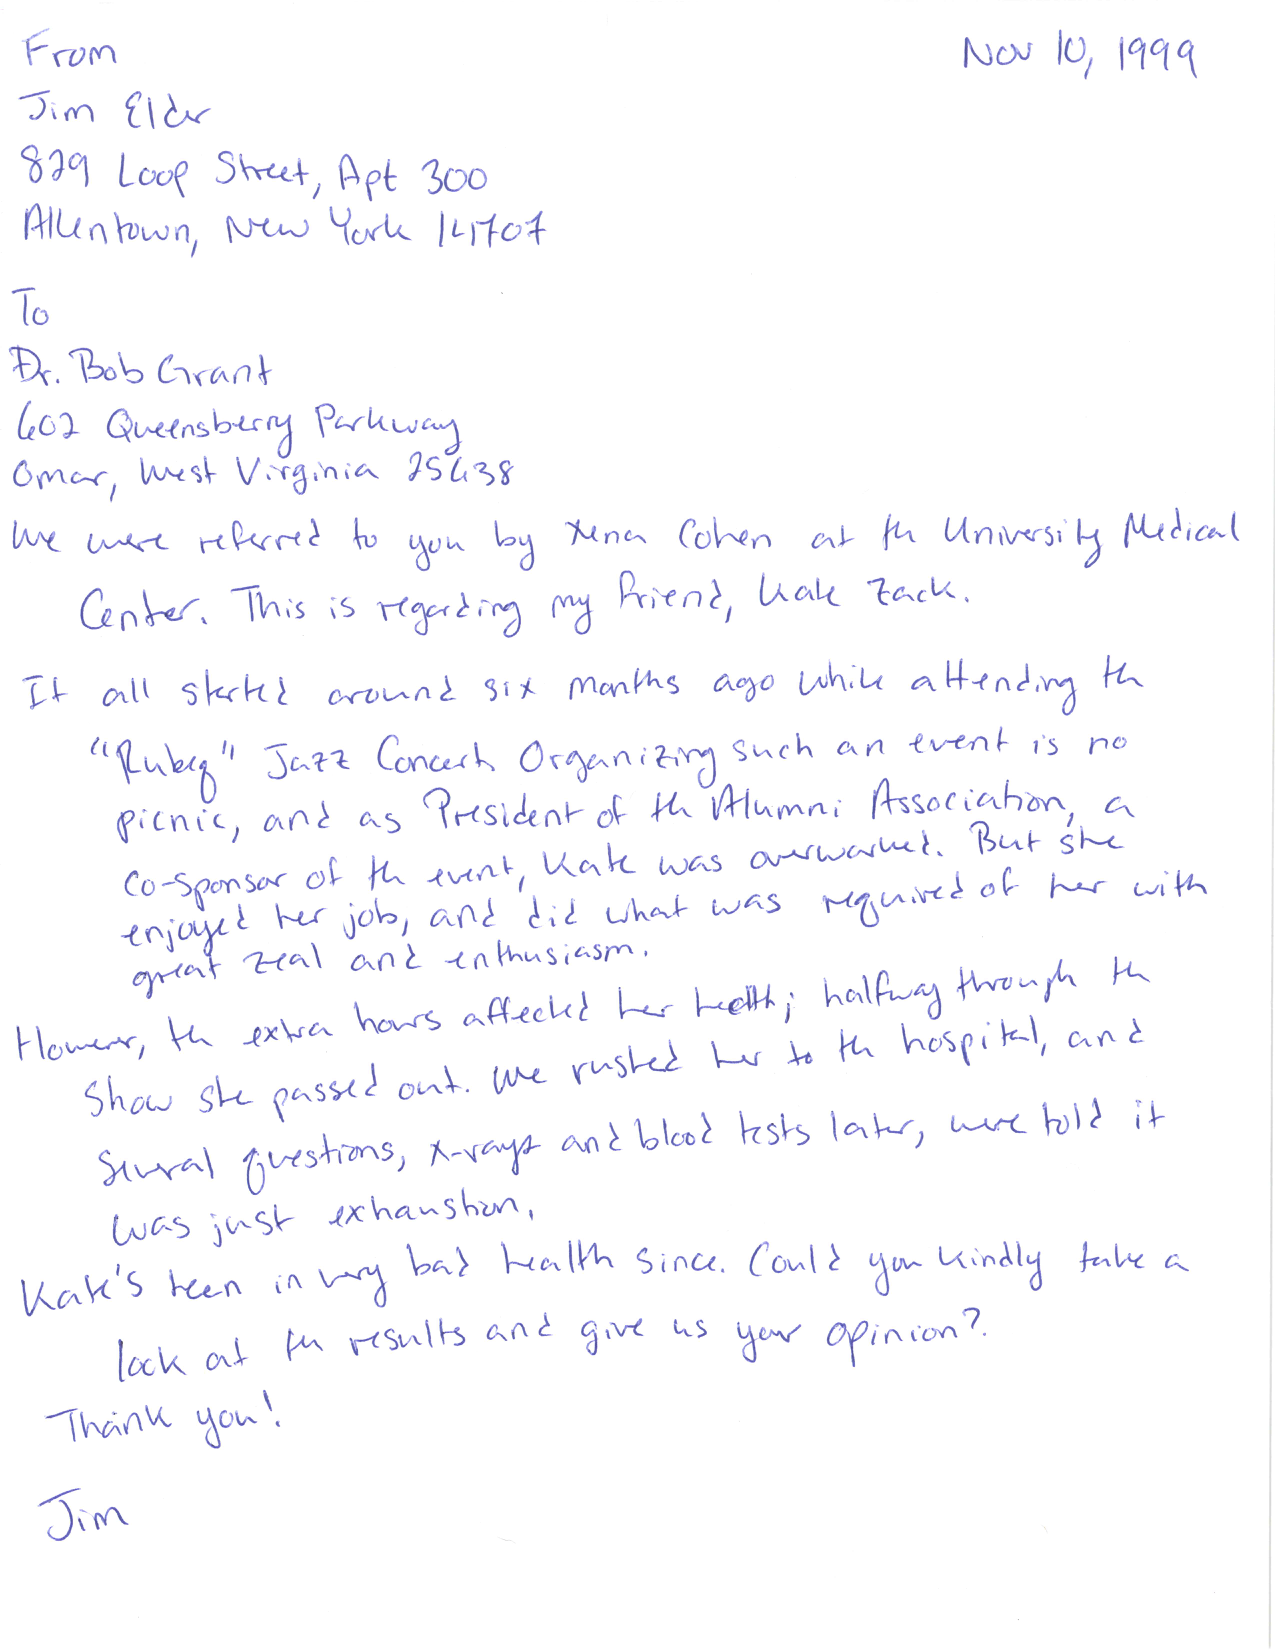 From
Nov 10, 1999
Jim Elder
829 Loop Street, Apt 300
Allentown, New York 14707
To
Dr. Bob Grant
602 Queensberry Parkway
Omar, West Virginia 25638
We were referred to you by Xena Cohen at the University Medical
Center. This is regarding my friend, Kate Zack.
It all started around six months ago while attending the
"Rubeq" Jazz Concert. Organizing such an event is no
picnic, and as President of the Alumni Association, a
co-sponsor of the event, Kate was overworked. But she
enjoyed her job, and did what was required of her with
great zeal and enthusiasm.
However, the extra hours affected her health; halfway through the
show she passed out. We rushed her to the hospital, and
several questions, x-rays and blood tests later, were told it
was just exhaustion.
Kate's been in very bad health since. Could you kindly take a
look at the results and give us your opinion?
Thank you!
Jim